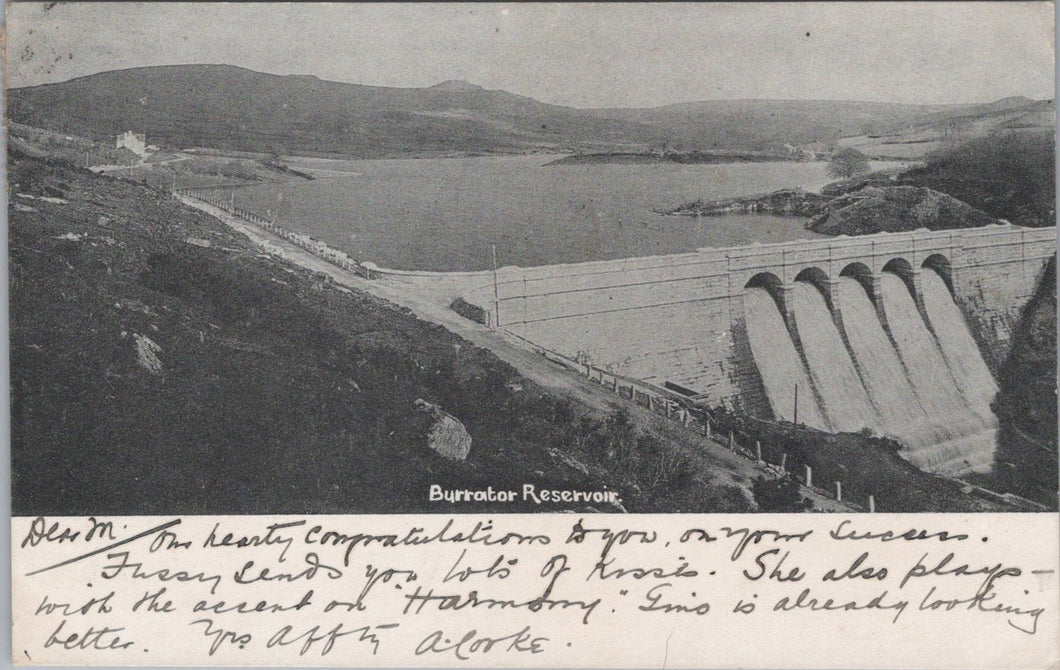 Burrator Reservoir.
Dear M. Our hearty congratulations to you, on your success.
Fussy sends you lots of kisses. She also plays –
with the accent on "Harmony". Tims is already looking
better. Yrs Affty A. Cooke.